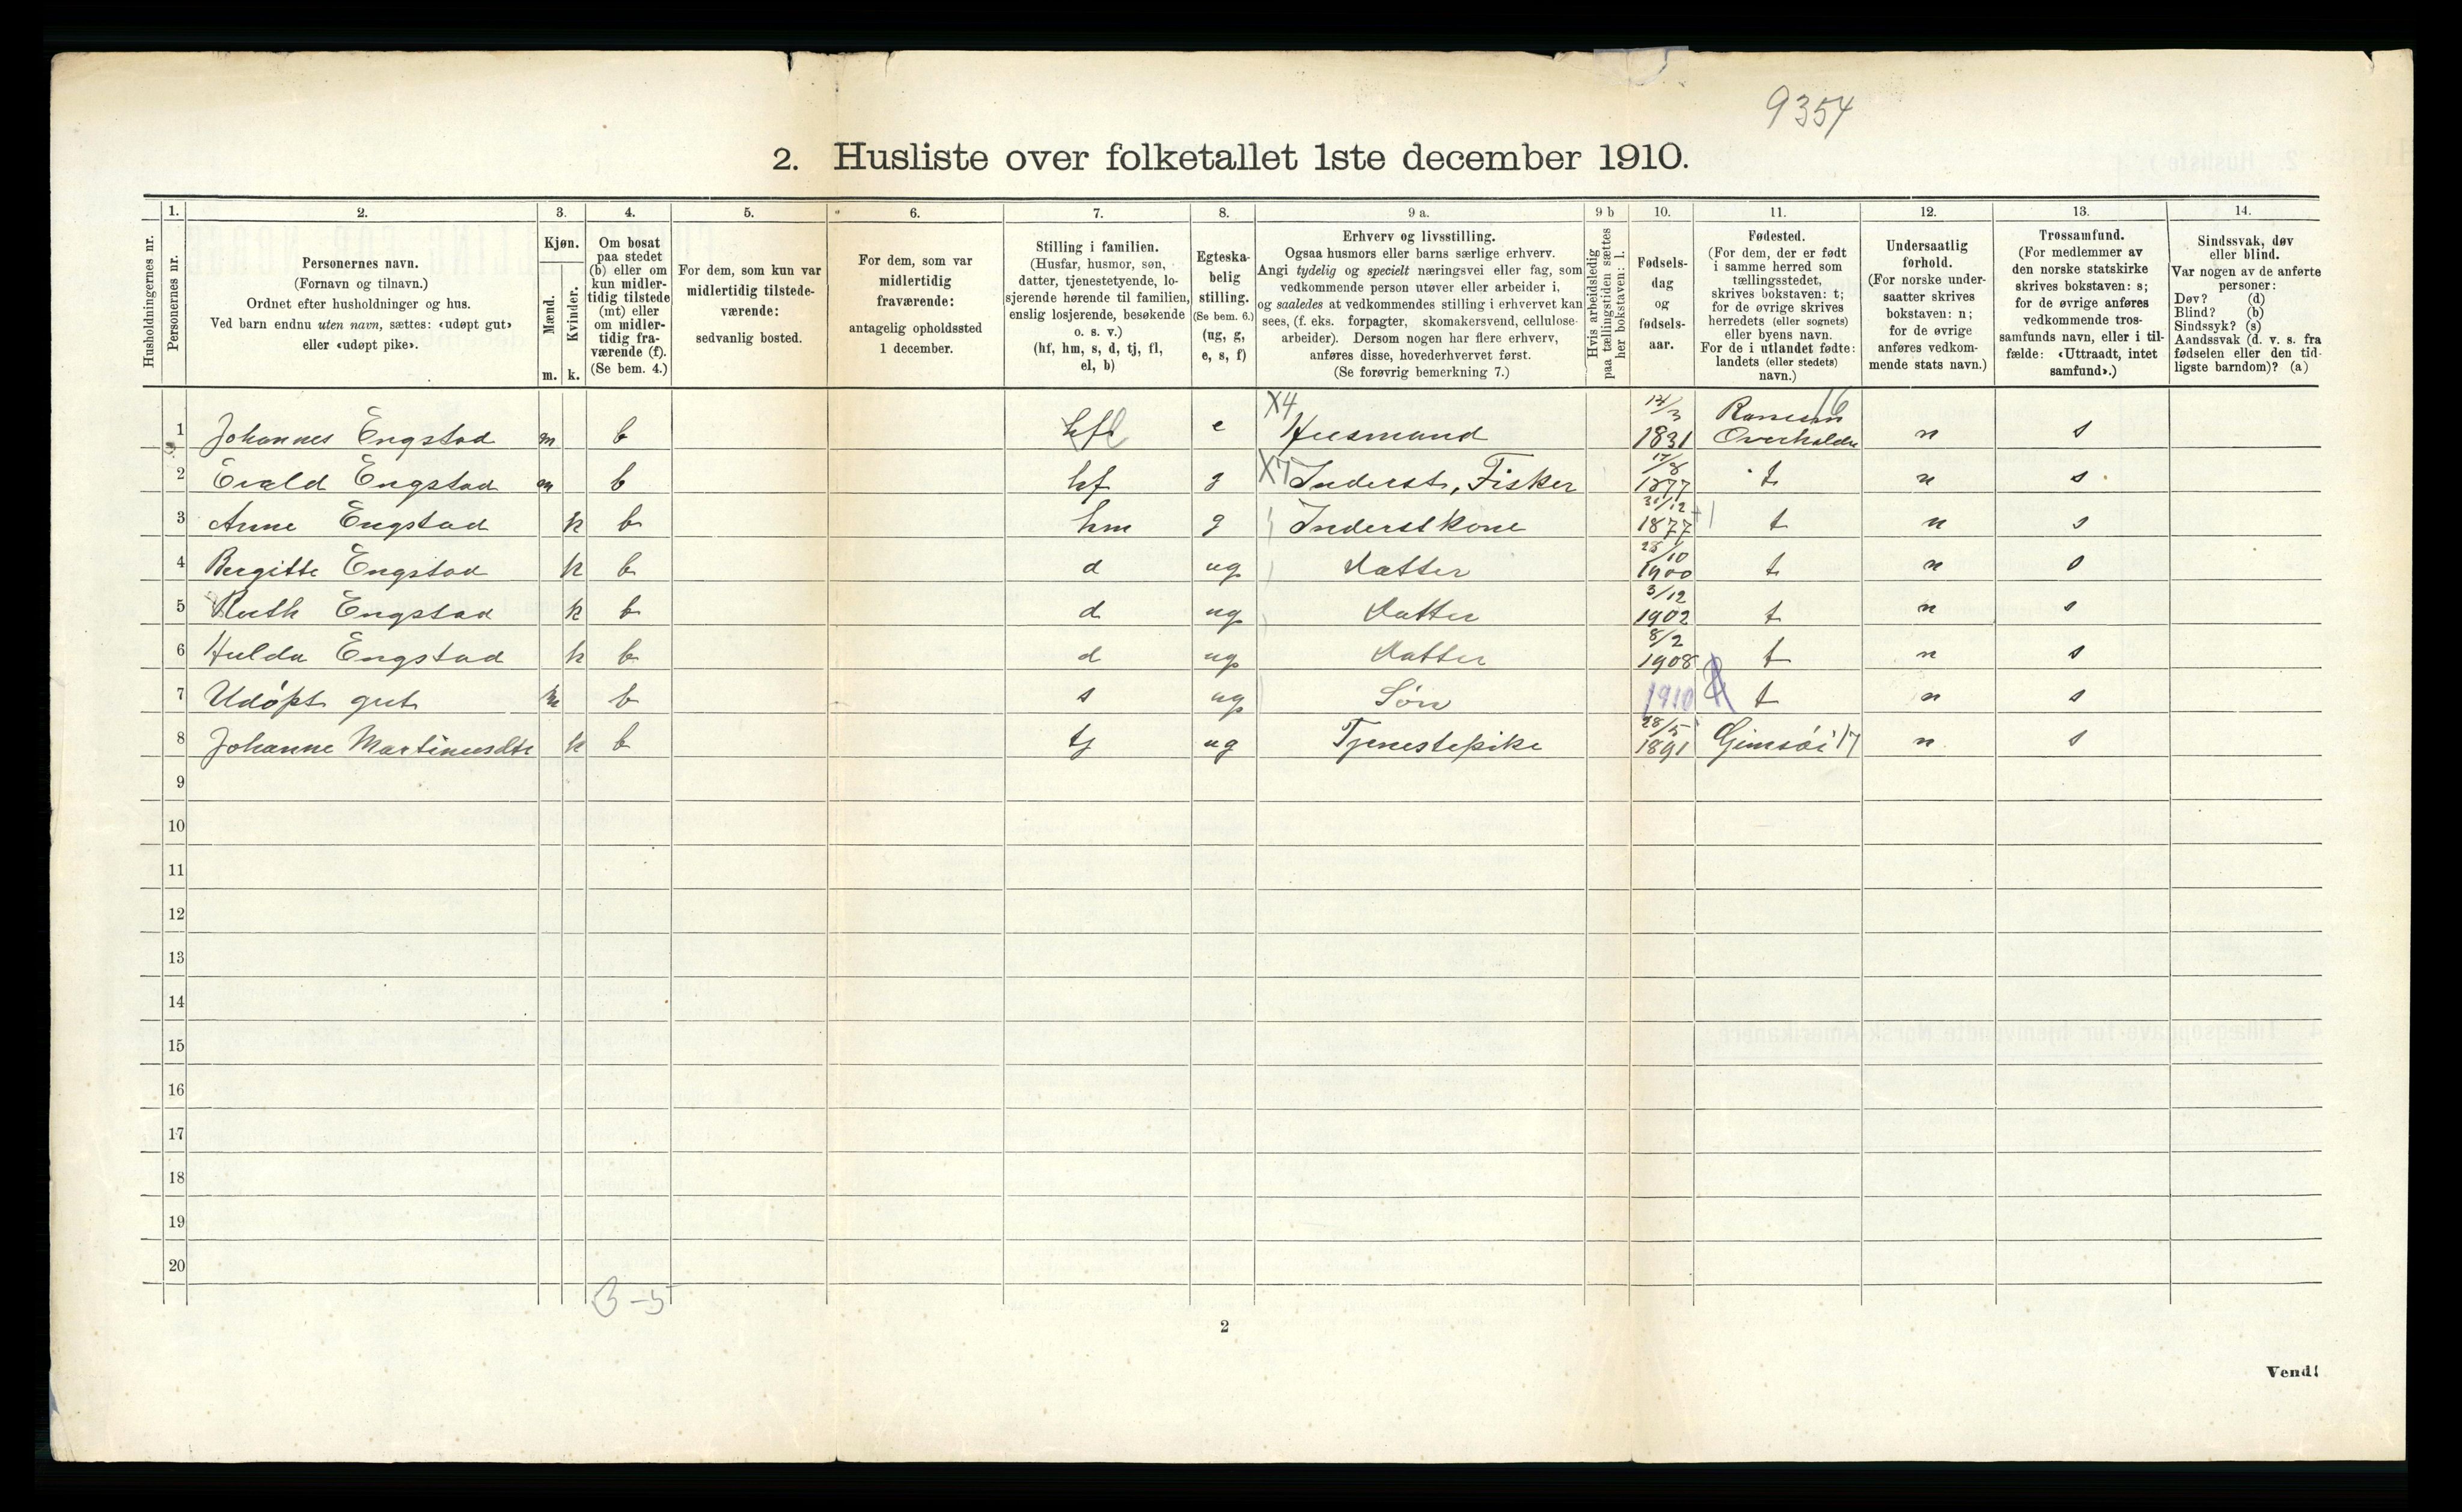 9354
2. Husliste over folketallet 1ste december 1910.
Husholdningernes nr.
1.
Personernes nr.
2.
Personernes navn.
(Fornavn og tilnavn.)
Ordnet efter husholdninger og hus.
Ved barn endnu uten navn, sættes: «udøpt gut»
eller «udøpt pike».
3.
Kjøn.
Mænd.
Kvinder.
m. k.
4.
Om bosat
paa stedet
(b) eller om
kun midler-
tidig tilstede
(mt) eller
om midler-
tidig fra-
værende (f).
(Se bem. 4.)
5.
For dem, som kun var
midlertidig tilstede-
værende:
sedvanlig bosted.
6.
For dem, som var
midlertidig
fraværende:
antagelig opholdssted
1 december.
7.
Stilling i familien.
(Husfar, husmor, søn,
datter, tjenestetyende, lo-
sjerende hørende til familien,
enslig losjerende, besøkende
o. s. v.)
(hf, hm, s, d, tj, fl,
el, b)
8.
Egteska-
belig
stilling.
(Se bem. 6.)
(ug, g,
e, s, f)
9 a.
Erhverv og livsstilling.
Ogsaa husmors eller barns særlige erhverv.
Angi tydelig og specielt næringsvei eller fag, som
vedkommende person utøver eller arbeider i,
og saaledes at vedkommendes stilling i erhvervet kan
sees, (f. eks. forpagter, skomakersvend, cellulose-
arbeider). Dersom nogen har flere erhverv,
anføres disse, hovederhvervet først.
(Se forøvrig bemerkning 7.)
9 b
Hvis arbeidsledig
paa tællingstiden sættes
her bokstaven: l.
10.
Fødsels-
dag
og
fødsels-
aar.
11.
Fødested.
(For dem, der er født
i samme herred som
tællingsstedet,
skrives bokstaven: t;
for de øvrige skrives
herredets (eller sognets)
eller byens navn.
For de i utlandet fødte:
landets (eller stedets)
navn.)
12.
Undersaatlig
forhold.
(For norske under-
saatter skrives
bokstaven: n;
for de øvrige
anføres vedkom-
mende stats navn.)
13.
Trossamfund.
(For medlemmer av
den norske statskirke
skrives bokstaven: s;
for de øvrige anføres
vedkommende tros-
samfunds navn, eller i til-
fælde: «Uttraadt, intet
samfund».)
14.
Sindssvak, døv
eller blind.
Var nogen av de anførte
personer:
Døv? (d)
Blind? (b)
Sindssyk? (s)
Aandssvak (d. v. s. fra
fødselen eller den tid-
ligste barndom)? (a)
1 Johannes Engstad m b e X4 Husmand 1831 Overhalden 16 n s
2 Evald Engstad m b hf g X7 Inderst, Fisker 17/8 1877 t n s
3 Anne Engstad k b hm g Inderstkone 31/12 1877 t n s
4 Bergitte Engstad k b d ug Datter 28/10 1900 t n s
5 Ruth Engstad k b d ug Datter 3/12 1902 t n s
6 Hulda Engstad k b d ug Datter 8/2 1908 t n s
7 Udøpt gut m b s ug Søn 1910 t n s
8 Johanne Martinusdtr k b tj ug Tjenestepike 28/5 1891 Gimsøi 17 n s
9
10
11
12
13
14
15
16
17
18
19
20
3-5
2
Vend!